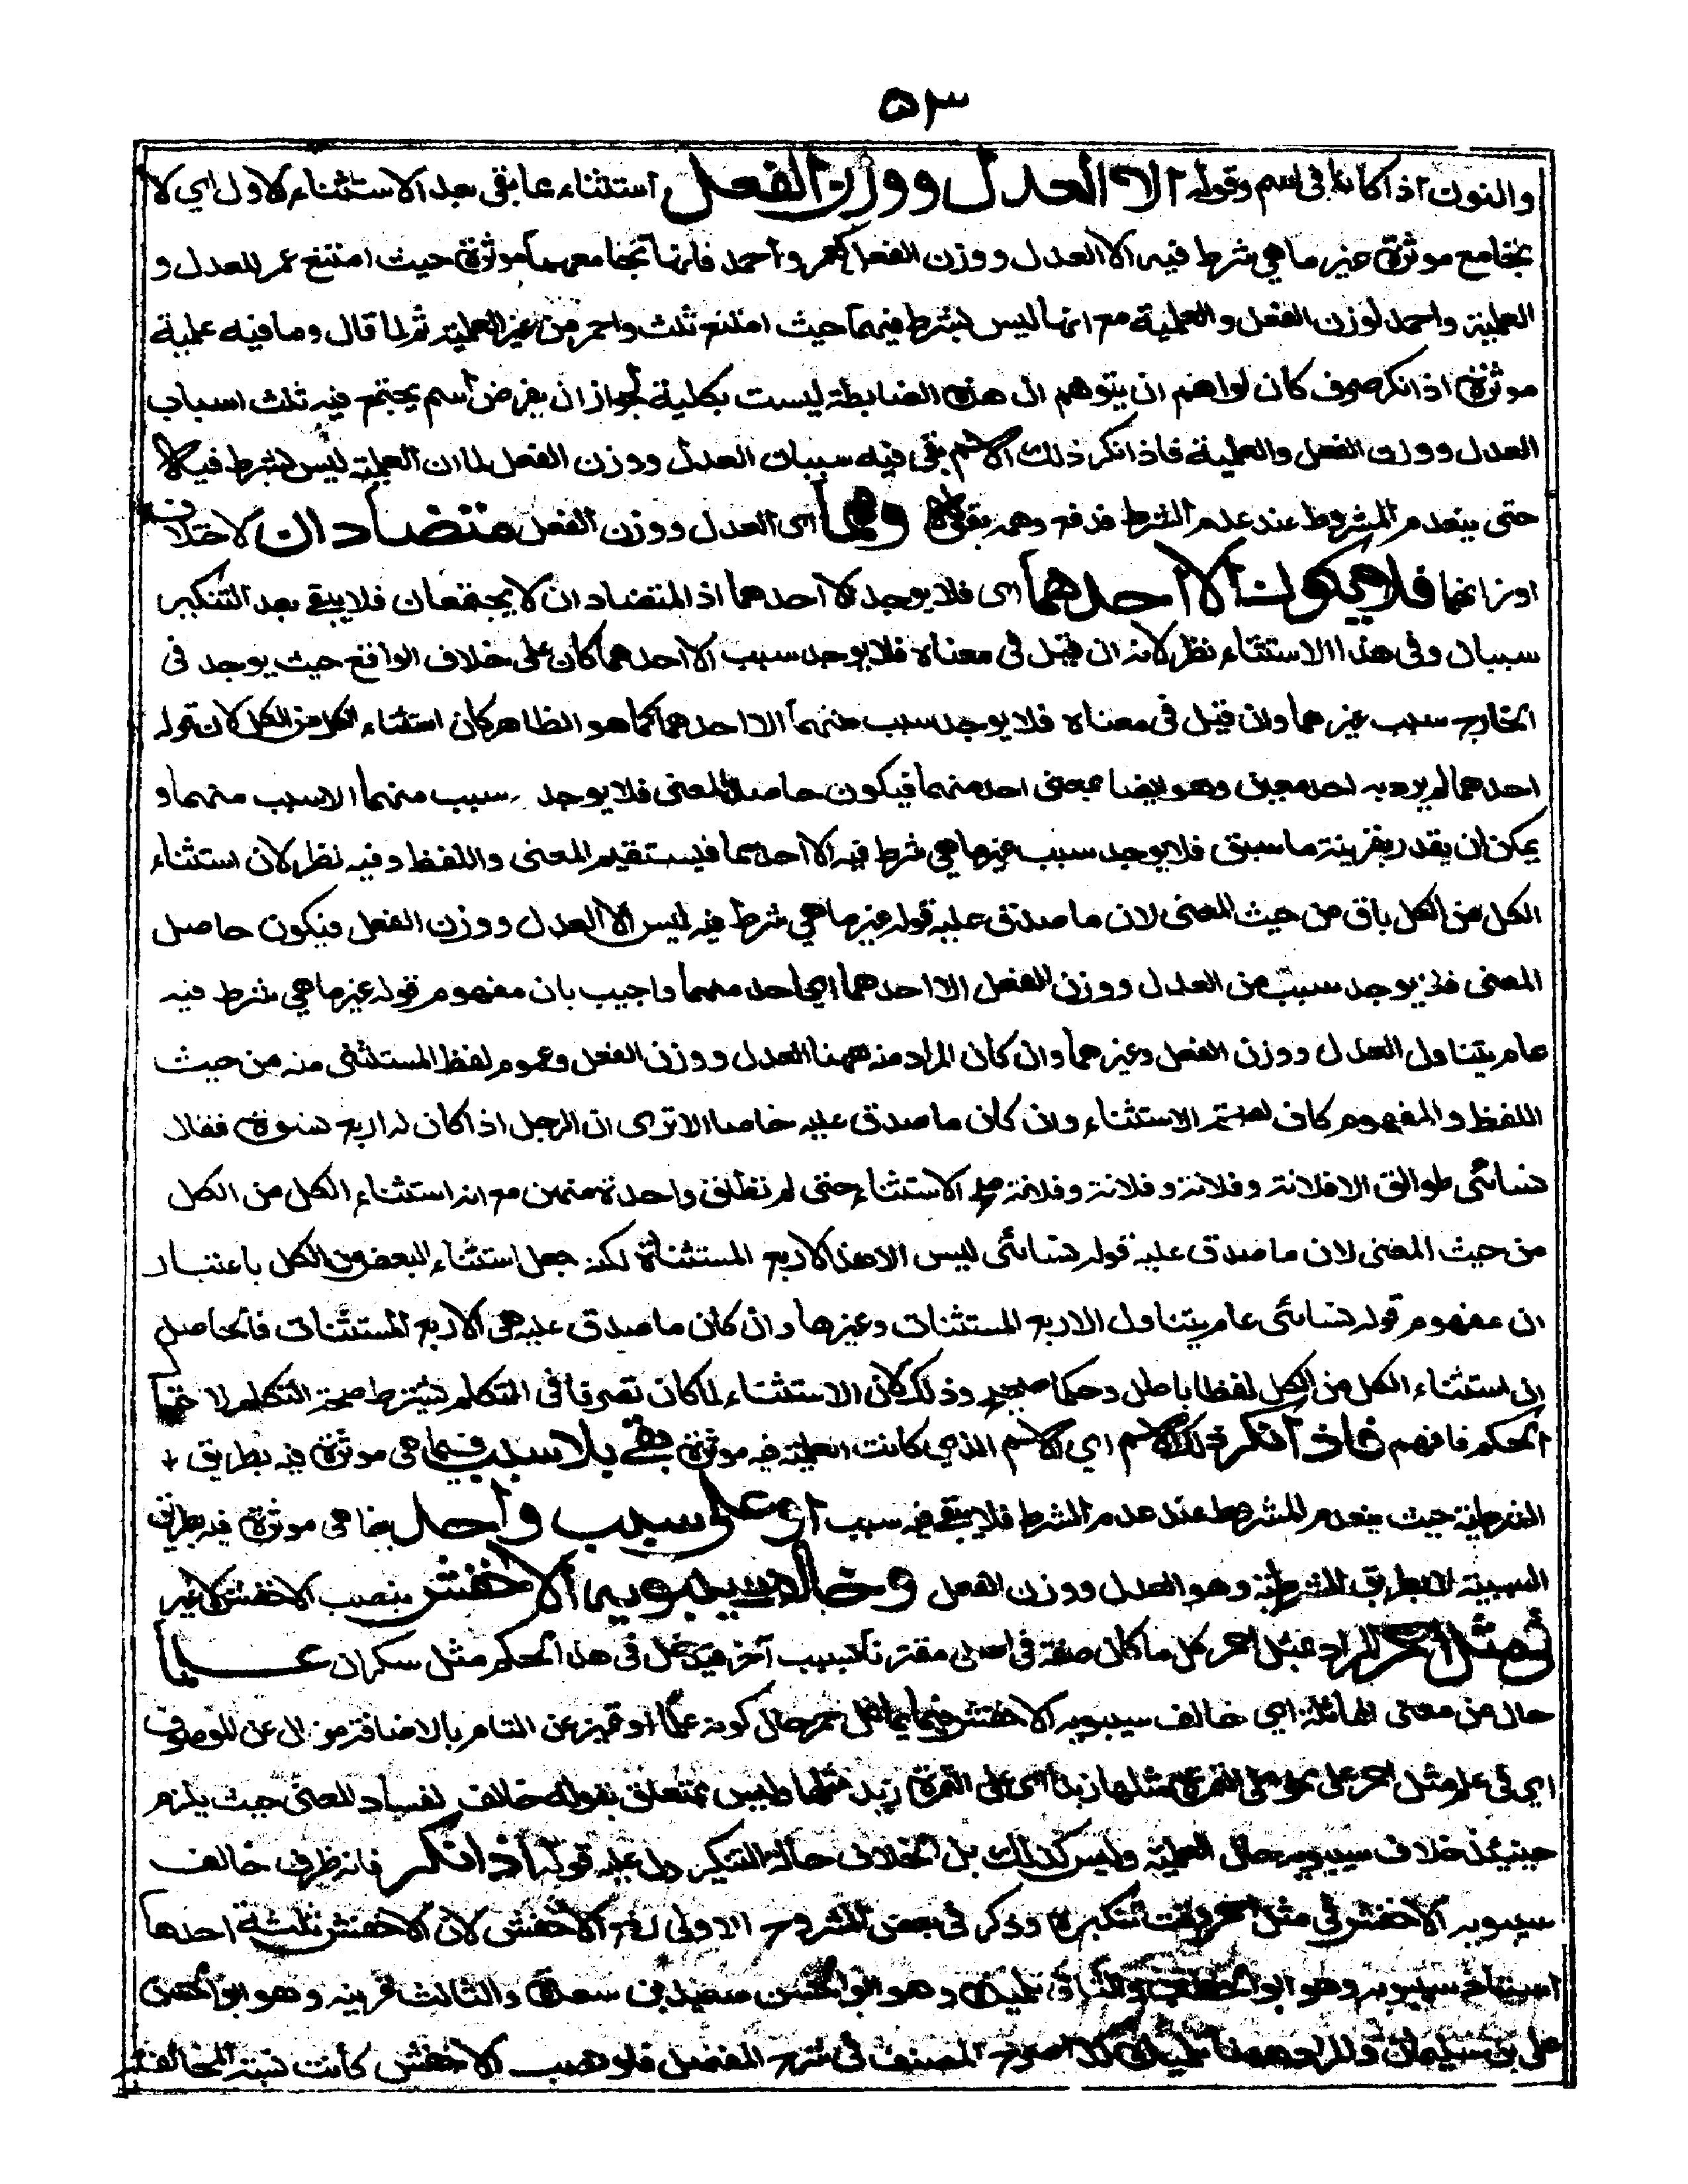 ٥٣
والنون اذا كانتا في اسم وقوله الا العدل ووزن الفعل استثناء عما بقى بعد الاستثناء الاول اي لا
تجامع موثرة غير ما هي شرط فيه الا العدل ووزن الفعل كعمر واحمد فانها تجامعهما موثرة حيث امتنع عمر للعدل و
العلمية واحمد لوزن الفعل والعلمية مع انها ليس بشرط فيهما حيث امتنع ثلث واحمر من غير العلمية ثم لما قال وما فيه علمية
موثرة اذا نكر صرف كان لواهم ان يتوهم ان هذه الضابطة ليست بكلية لجواز ان يفرض اسم يجتمع فيه ثلث اسباب
العدل ووزن الفعل والعلمية فاذا نكر ذلك الاسم بقى فيه سببان العدل ووزن الفعل لما ان العلمية ليس بشرط فيها
حتى ينعدم المشروط عند عدم الشرط فدفع وهمه بقوله وهما اى العدل ووزن الفعل متضادان لاختلاف
اوزانهما فلا يكون الا احدهما اى فلا يوجد الا احدهما اذ المتضادان لا يجتمعان فلا يبقى بعد التنكير
سببان وفي هذا الاستثناء نظر لانه ان قيل في معناه فلا يوجد سبب الا احدهما كان على خلاف الواقع حيث يوجد في
الخارج سبب غيرهما وان قيل في معناه فلا يوجد سبب منهما الا احدهما كما هو الظاهر كان استثناء الكل من الكل لان قوله
احدهما لم يرد به احد معين وهو ايضا بمعنى احد منهما فيكون حاصل المعنى فلا يوجد سبب منهما الا سبب منهما و
يمكن ان يقدر بقرينة ما سبق فلا يوجد سبب غير ما هي شرط فيه الا احدهما فيستقيم المعنى واللفظ وفيه نظر لان استثناء
الكل من الكل باق من حيث المعنى لان ما صدق عليه قوله غير ما هي شرط فيه ليس الا العدل ووزن الفعل فيكون حاصل
المعنى فلا يوجد سبب من العدل ووزن الفعل الا احدهما اي احد منهما واجيب بان مفهوم قوله غير ما هي شرط فيه
عام يتناول العدل ووزن الفعل وغيرهما وان كان المراد منه ههنا العدل ووزن الفعل وعموم لفظ المستثنى منه من حيث
اللفظ والمفهوم كاف الاستثناء وان كان ما صدق عليه خاصا الا ترى ان الرجل اذا كان له اربع نسوة فقال
نسائى طوالق الا فلانة وفلانة وفلانة وفلانة صح الاستثناء حتى لم تطلق واحدة منهن مع انه استثناء الكل من الكل
من حيث المعنى لان ما صدق عليه قوله نسائى ليس الا هذه الاربع المستثناة لكنه جعل استثناء البعض من الكل باعتبار
ان مفهوم قوله نسائى عام يتناول الاربع المستثنات وغيرها وان كان ما صدق عليه هى الاربع المستثنات فالحاصل
ان استثناء الكل من الكل لفظا باطل وحكما صحيح وذلك لان الاستثناء لما كان تصرفا في التكلم يشترط صحة التكلم لا صحة
الحكم فافهم فاذا نكر ذلك الاسم اي الاسم الذي كانت العلمية فيه موثرة بقي بلا سبب فيما هى موثرة فيه بطريق
الشرطية حيث ينعدم المشروط عند عدم الشرط فلا يبقى فيه سبب او على سبب واحد فيما هى موثرة فيه بطريق
السببية لا بطريق الشرطية وهو العدل ووزن الفعل وخالف سيبويه الاخفش بنصب الاخفش لا غير
في مثل احمر المراد بمثل احمر كل ما كان صفة في اصله مقترنا بسبب آخر فيدخل في هذا الحكم مثل سكران علما
حال من معنى المماثلة اي خالف سيبويه الاخفش فيما يماثل احمر حال كونه علما او تميز عن التام بالاضافة عن الموصوف
اي في علم مثل احمر على نحو على التمرة مثلها زبدا اى على التمرة زبد مثلها وليس بمتعلق بقوله خالف لفساد المعنى حيث يلزم
حينئذ خلاف سيبويه حال العلمية وليس كذلك بل الخلاف حالة التنكير دل عليه قوله اذا نكر فانه ظرف خالف
سيبويه الاخفش في مثل احمر وقت تنكيره وذكر في بعض الشروح الاولى رفع الاخفش لان الاخفش ثلثة احدها
استاذ سيبويه وهو ابو الخطاب والثانى تلميذه وهو ابو الحسن سعيد بن سعدة والثالث قرينه وهو ابو الحسن
على بن سليمان والمراد ههنا تلميذه كذا صرح المصنف في شرح المفصل فلو نصب الاخفش كانت نسبة المخالفة